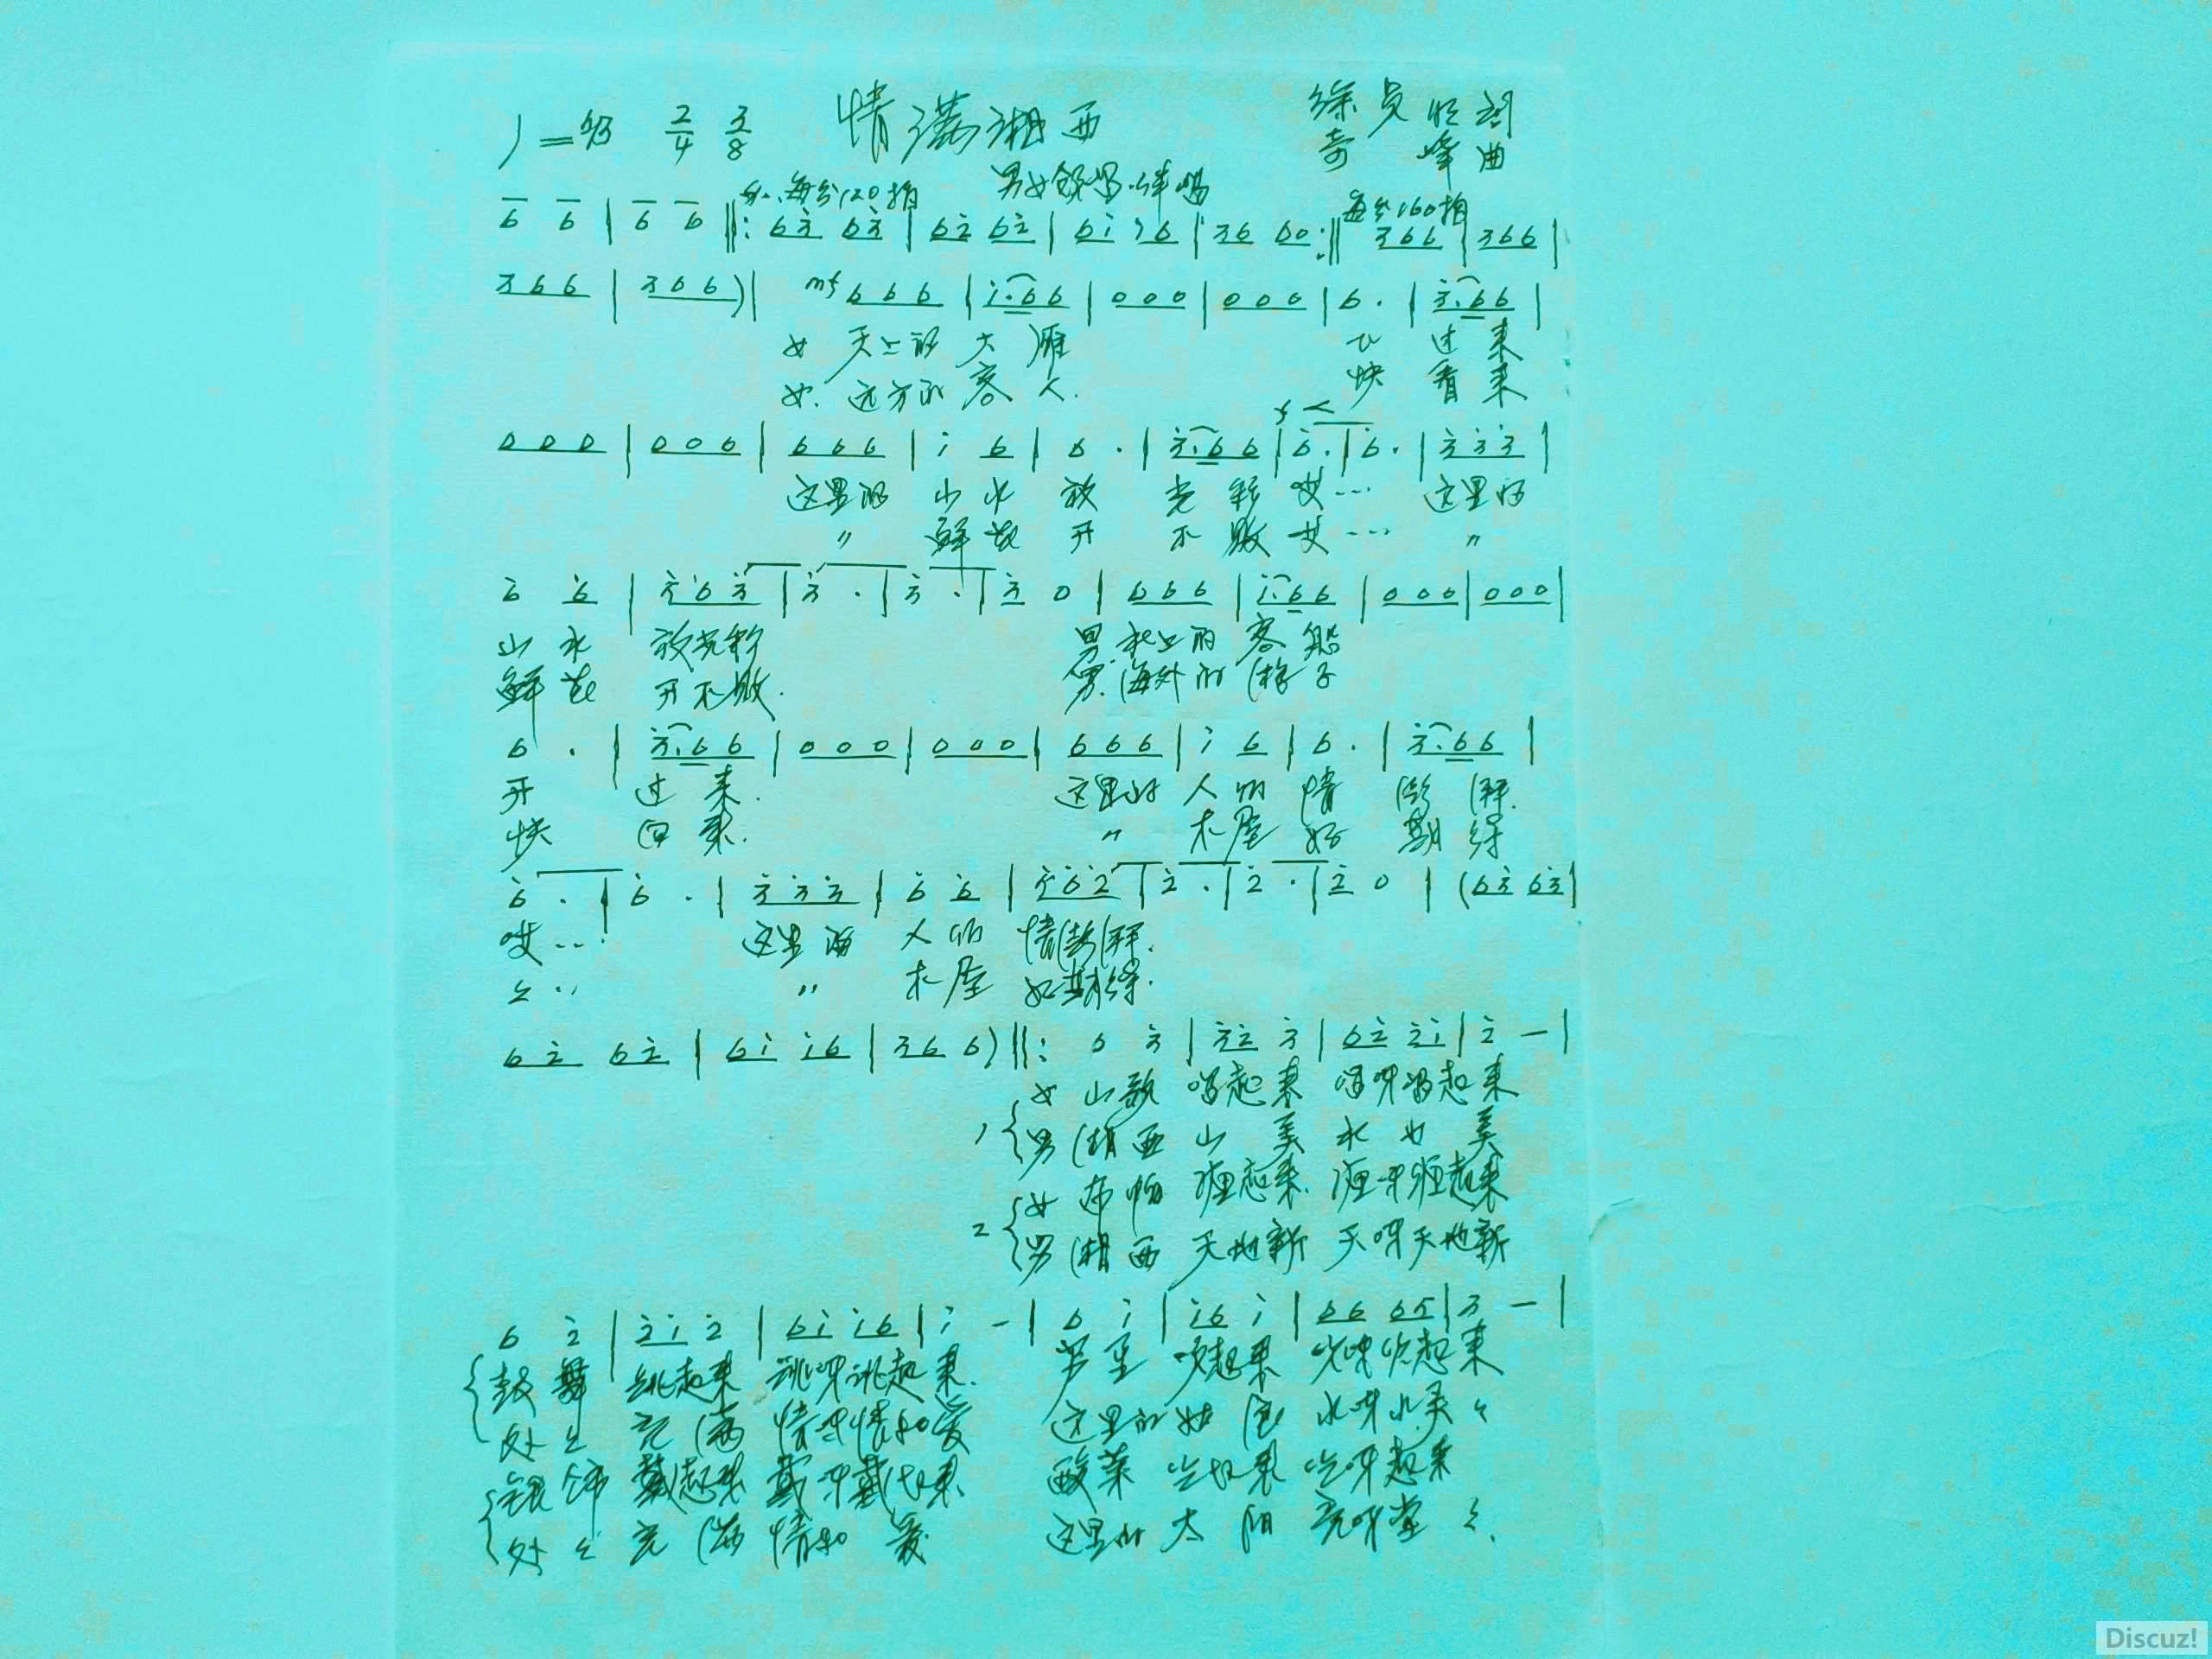 1=♭B 2/4 3/8 情满湘西 徐贡 词
奇峰 曲
每分120拍 男女领唱.伴唱 每分160拍
6 6 | 6 6 ‖: 6 3̇ 6 3̇ | 6 2̇ 6 2̇ | 6 1̇ 1̇ 6 | 3 6 6 0 :‖ 3 6 6 | 3 6 6 |
3 6 6 | 3 6 6 )| mf 6 6 6 | 1̇. 6 6 | 0 0 0 | 0 0 0 | 6 . | 3̇. 6 6 |
女 天上的 大 雁 飞 过 来
女. 远方的 客 人. 快 看 来
0 0 0 | 0 0 0 | 6 6 6 | 1̇ 6 | 6 . | 3̇. 6 6 | 6̇ . | 6̇ . | 3̇ 3̇ 3̇ |
这里的 山 水 放 光 彩 哎… 这里的
〃 鲜 花 开 不 败 … 〃
6̇ 6̇ | 3̇ 6̇ 3̇ | 3̇ . | 3̇ . | 3̇ 0 | 6 6 6 | 1̇. 6 6 | 0 0 0 | 0 0 0 |
山 水 放光彩 男. 上的 客 船
鲜 花 开不败. 男. 海外的 游 子
6 . | 3̇. 6 6 | 0 0 0 | 0 0 0 | 6 6 6 | 1̇ 6 | 6 . | 3̇. 6 6 |
开 过 来. 这里的 人 的 情 澎 湃.
快 回 来. 〃 木 屋 好 期 待
6̇ . | 6̇ . | 3̇ 3̇ 3̇ | 6̇ 6̇ | 3̇ 6̇ 2̇ | 2̇ . | 2̇ . | 2̇ 0 | (6 3̇ 6 3̇ |
哎… 这里的 人 的 情澎湃.
〃 木 屋 好期待.
6 2̇ 6 2̇ | 6 1̇ 1̇ 6 | 3 6 6 )‖: 6 3̇ | 3̇ 2̇ 3̇ | 6 2̇ 2̇ 1̇ | 2̇ — |
1 女 山歌 唱起来 唱呀唱起来
男 湘西 山 美 水 也 美
2 女 布 帕 起来. 呀 起来
男 湘西 天地新 天呀天地新
6 2̇ | 2̇ 1̇ 2̇ | 6 1̇ 1̇ 6 | 1̇ — | 6 1̇ | 1̇ 6 1̇ | 6 6 6 5 | 3 — |
鼓 舞 跳起来 跳呀跳起来. 芦 笙 吹起来 吹呀吹起来
处 〻 充 满 情呀情和爱 这里的 水呀水灵 〻
银 饰 戴起来 戴呀戴起来 酸菜 吃起来 吃呀起来
处 〻 充 满 情和 爱 这里的 太 阳 亮呀堂 〻.
Discuz!